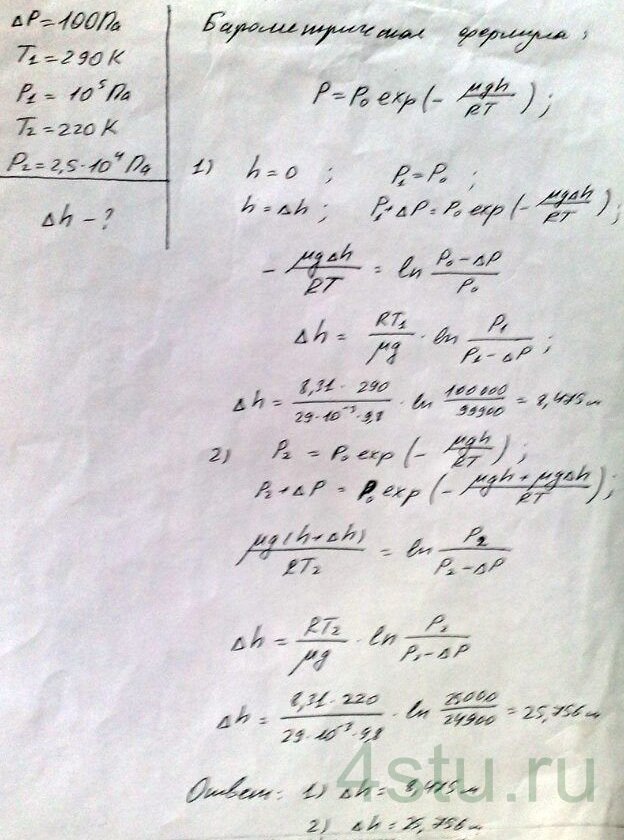 ΔP=100Па
T₁=290K
P₁=10⁵Па
T₂=220K
P₂=2,5·10⁴Па
Δh-?
Барометрическая формула:
P=P₀exp(-μgh/RT);
1) h=0; P₁=P₀;
h=Δh; P₁+ΔP=P₀exp(-μgΔh/RT);
-μgΔh/RT = ln (P₀-ΔP)/P₀
Δh = RT₁/μg · ln P₁/(P₁-ΔP);
Δh = 8,31·290/29·10⁻³·9,8 · ln 100000/99900 = 8,475м
2) P₂ = P₀exp(-μgh/RT);
P₂+ΔP = P₀exp(-μgh+μgΔh/RT);
μg(h+Δh)/RT₂ = ln P₂/(P₂-ΔP)
Δh = RT₂/μg · ln P₂/(P₂-ΔP)
Δh = 8,31·220/29·10⁻³·9,8 · ln 25000/24900 = 25,756м
Ответ: 1) Δh=8,475м
2) Δh=25,756м
4stu.ru